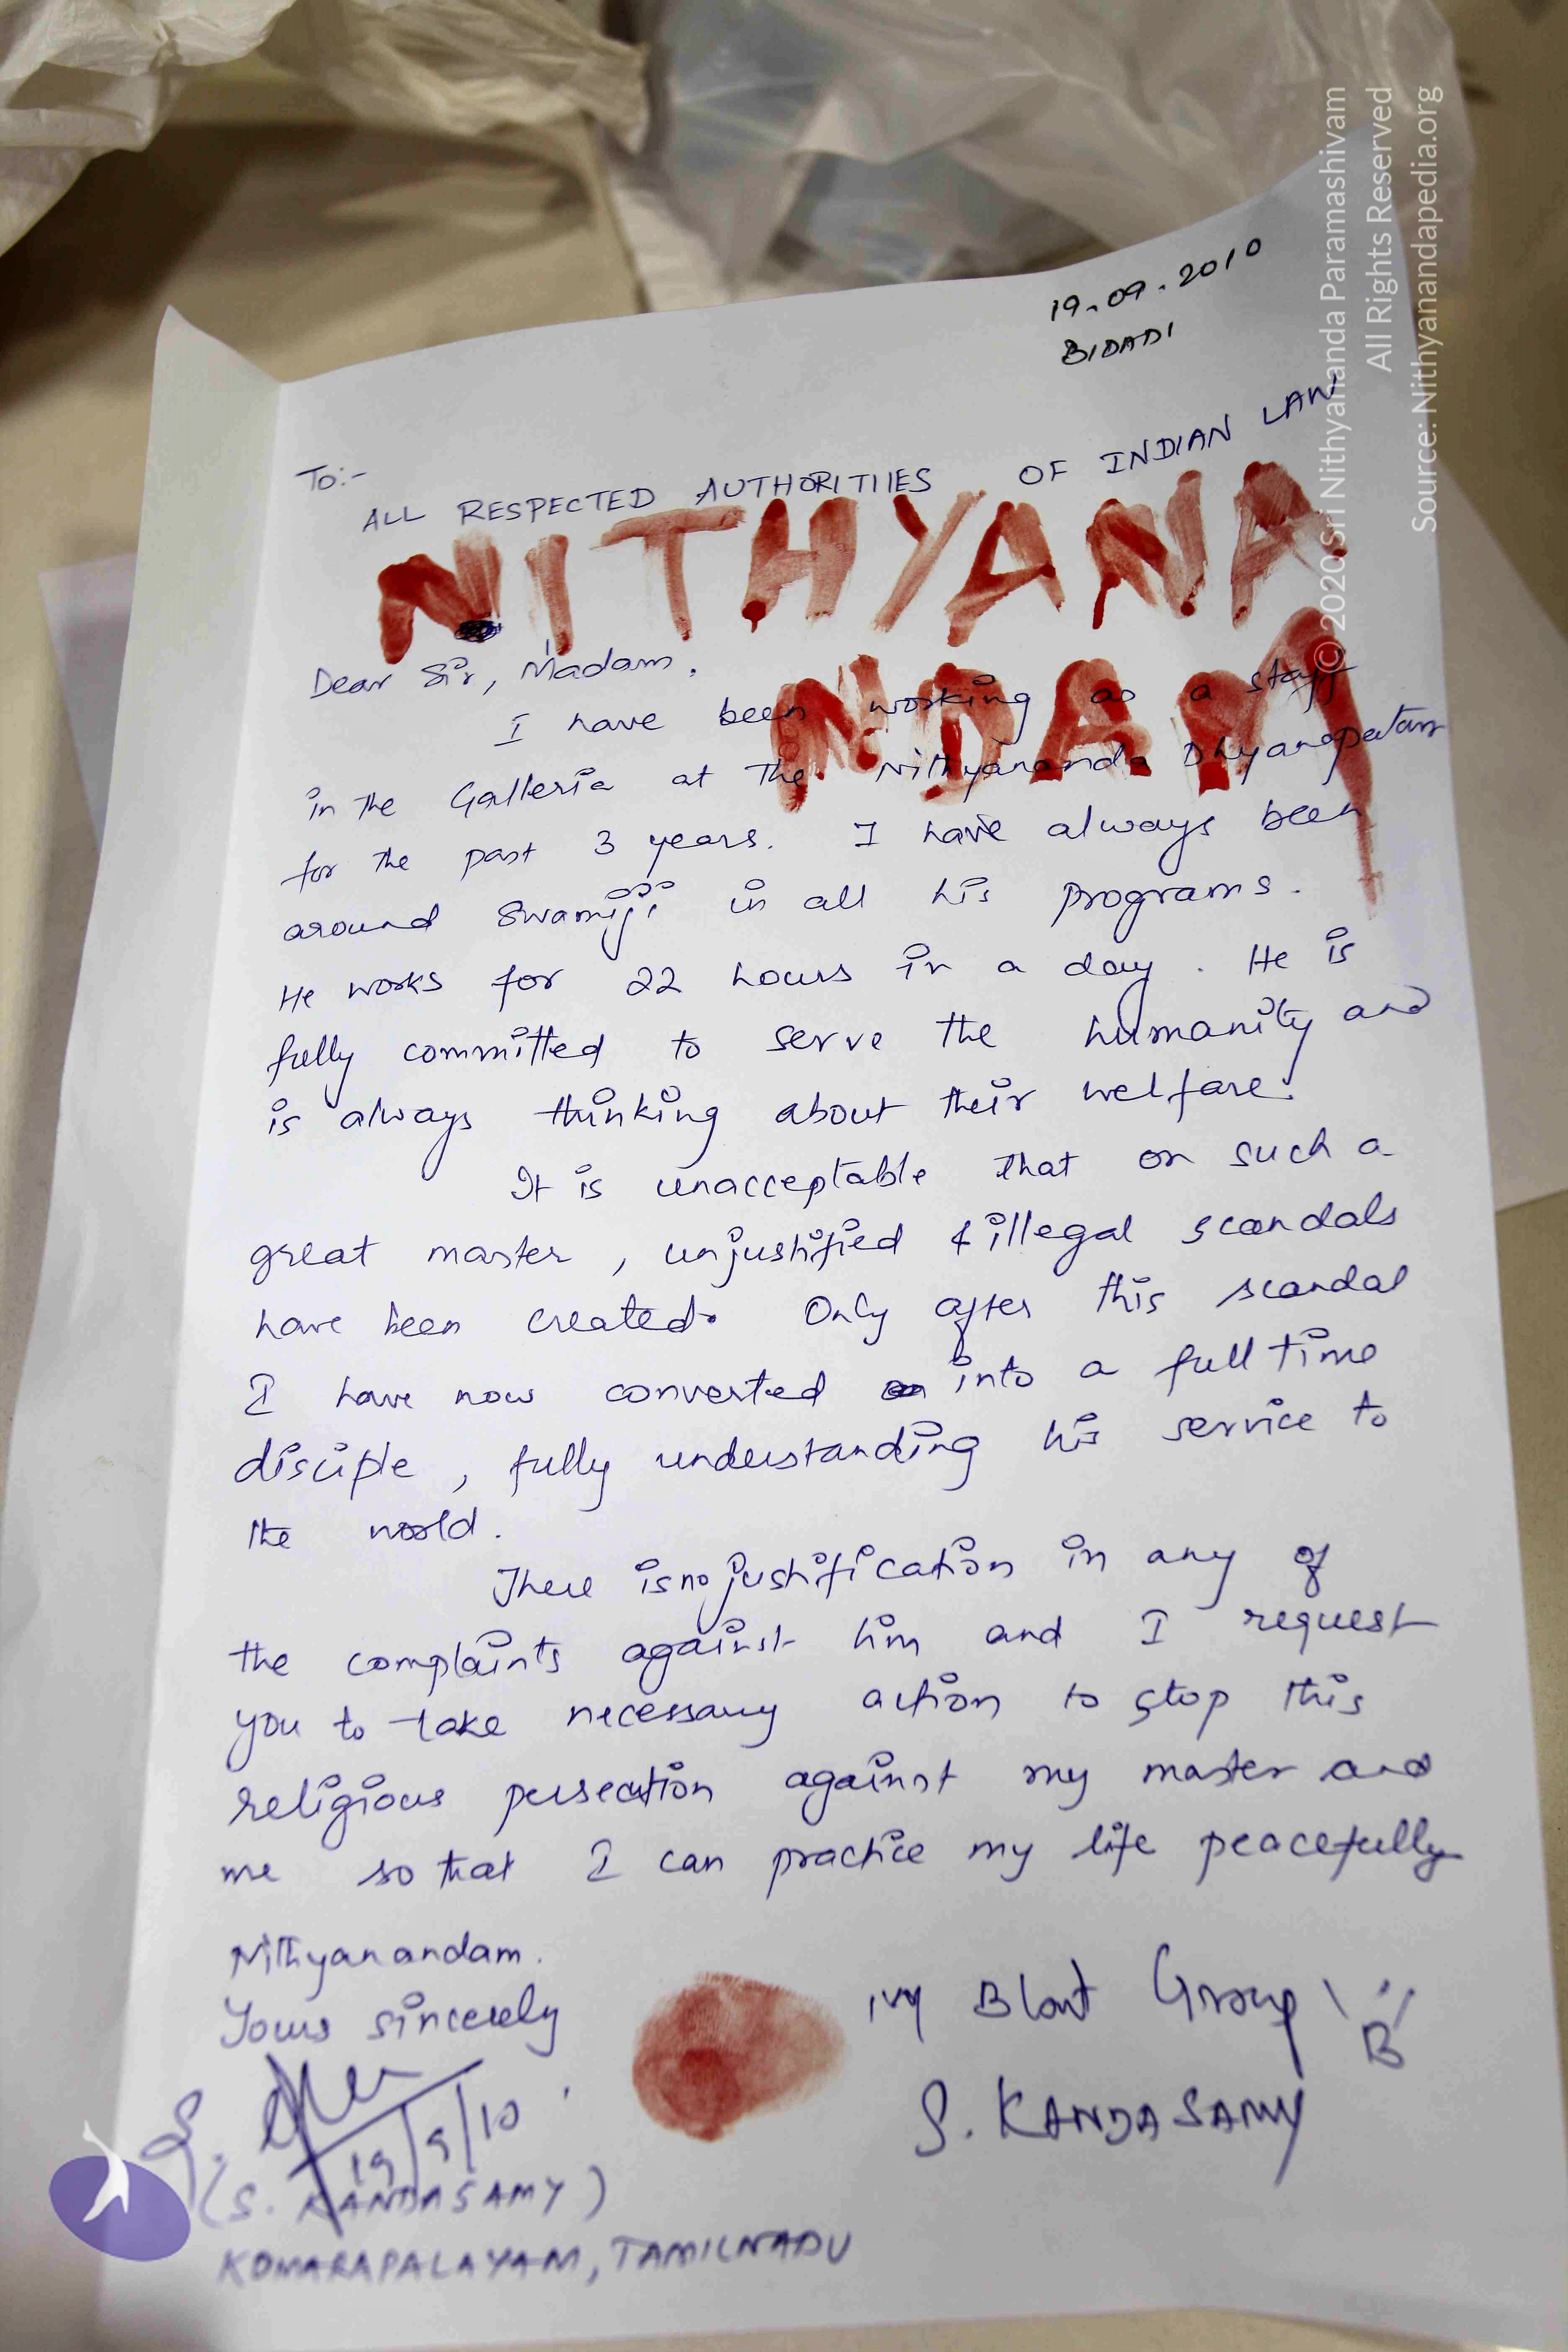 19.09.2010
BIDADI
To:-
ALL RESPECTED AUTHORITIIES OF INDIAN LAW
NITHYANA
NDAM
Dear Sir, Madam.
I have been working as a staff
in the Galleria at the Nithyananda Dhyanapeetam
for the past 3 years. I have always been
around Swamiji in all his programs.
He works for 22 hours in a day. He is
fully committed to serve the humanity and
is always thinking about their welfare.
It is unacceptable that on such a
great master, unjustified & illegal scandals
have been created. Only after this scandal
I have now converted into a full time
disciple, fully understanding his service to
the world.
There is no justification in any of
the complaints against him and I request
you to take necessary action to stop this
religious persecution against my master and
me so that I can practice my life peacefully
Nithyanandam.
Yours sincerely
19/9/10
(S. KANDASAMY)
KOMARAPALAYAM, TAMILNADU
my Blont Group "B"
S. KANDASAMY
© 2020 Sri Nithyananda Paramashivam
All Rights Reserved
Source: Nithyanandapedia.org